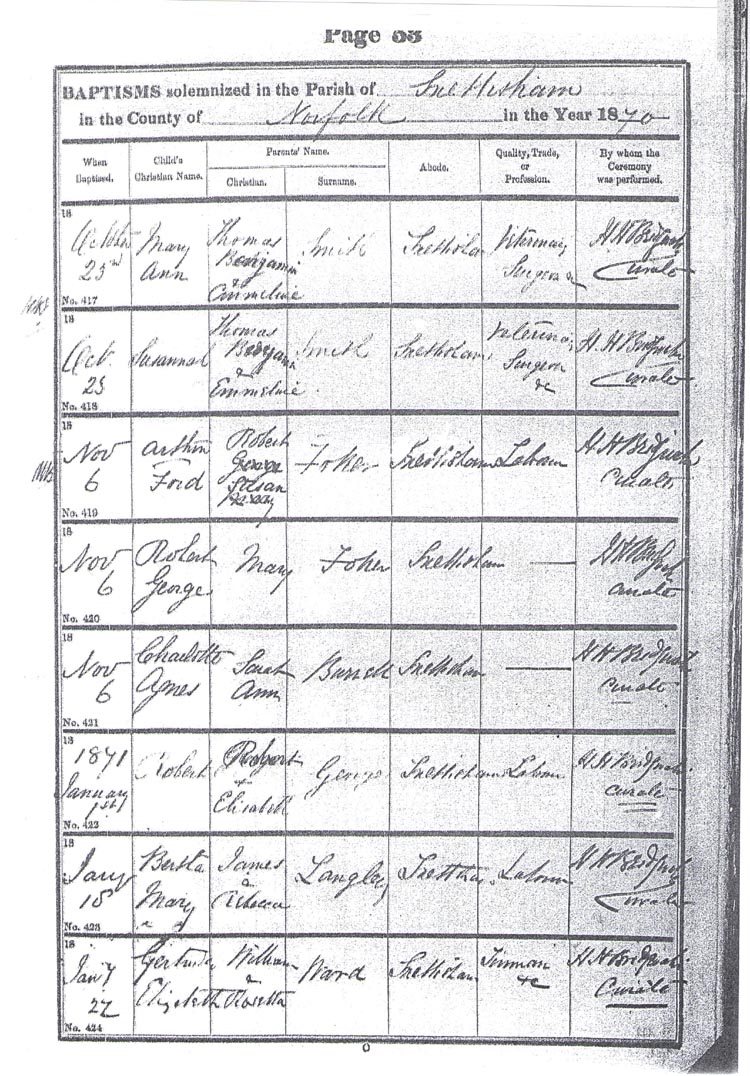 Page 53
BAPTISMS solemnized in the Parish of Snettisham
in the County of Norfolk in the Year 1870
When Baptised.
Child's Christian Name.
Parents' Name.
Christian.
Surname.
Abode.
Quality, Trade, or Profession.
By whom the Ceremony was performed.
18
October 23rd
Mary Ann
Thomas Benjamin & Emmeline
Smith
Snettisham
Veterinary Surgeon &c
H H Bridgwater
Curate
No. 417
18
Oct. 23
Susannah
Thomas Benjamin & Emmeline
Smith
Snettisham
Veterinary Surgeon &c
H. H Bridgwater
Curate
No. 418
18
Nov 6
Arthur Ford
Robert George Susan
Foker
Snettisham
Labour
H H Bridgwater
Curate
No. 419
18
Nov 6
Robert George
Mary
Foker
Snettisham
H H Bridgwater
Curate
No. 420
18
Nov 6
Charlotte Agnes
Sarah Ann
Burrell
Snettisham
H H Bridgwater
Curate
No. 421
18
1871
January 1st
Robert
Robert & Elizabeth
George
Snettisham
Labour
H. H Bridgwater
Curate
No. 422
18
Jany 18
Bertha Mary
James & Rebecca
Langley
Snettisham
Labour
H H Bridgwater
Curate
No. 423
18
Jany 22
Gertrude Elizabeth
William & Rosetta
Ward
Snettisham
Tinman &c
H H Bridgwater
Curate
No. 424